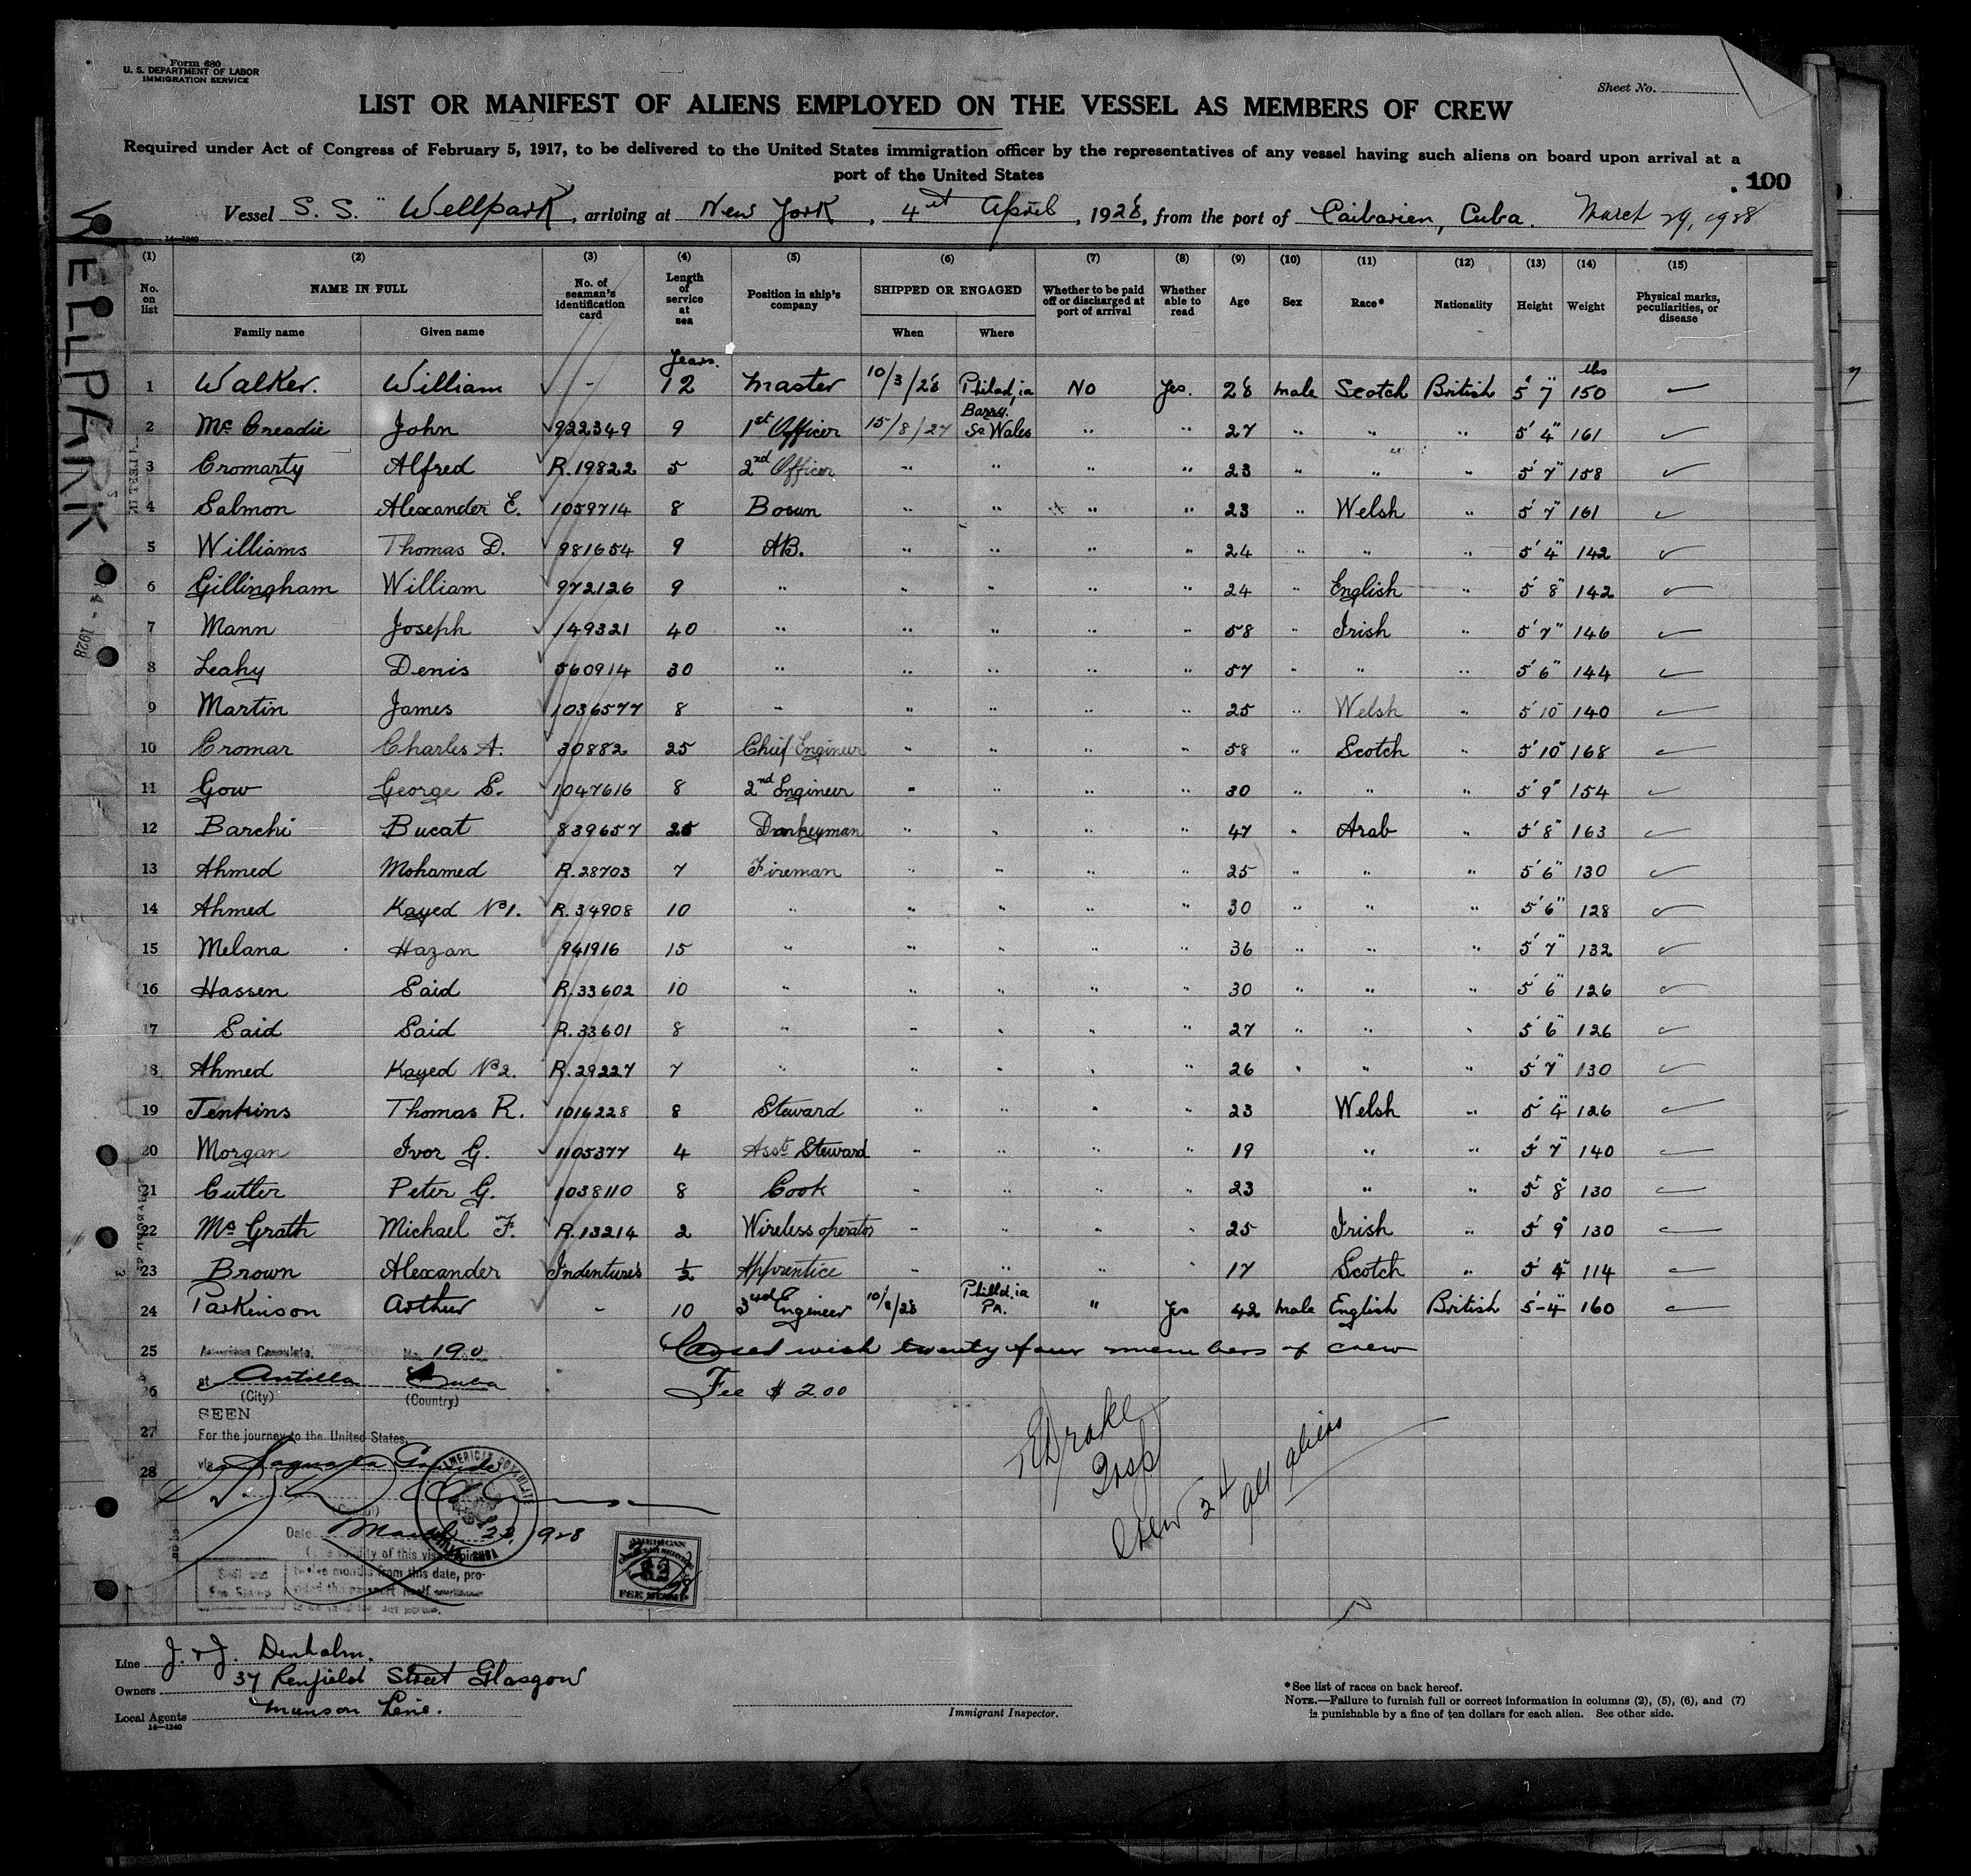 Form 680
U. S. DEPARTMENT OF LABOR
IMMIGRATION SERVICE
Sheet No.
LIST OR MANIFEST OF ALIENS EMPLOYED ON THE VESSEL AS MEMBERS OF CREW
Required under Act of Congress of February 5, 1917, to be delivered to the United States immigration officer by the representatives of any vessel having such aliens on board upon arrival at a
port of the United States
100
Vessel S. S. "Wellpark, arriving at New York, 4th April, 1928, from the port of Caibarien, Cuba. March 29, 1928
14-1240
WELLPARK
(1) (2) (3) (4) (5) (6) (7) (8) (9) (10) (11) (12) (13) (14) (15)
No. on list NAME IN FULL Family name Given name No. of seaman's identification card Length of service at sea Position in ship's company SHIPPED OR ENGAGED When Where Whether to be paid off or discharged at port of arrival Whether able to read Age Sex Race* Nationality Height Weight Physical marks, peculiarities, or disease
Years. lbs
1 Walker. William - 12 Master 10/3/28 Philad,ia No Yes. 28 male Scotch British 5' 7" 150
2 McCreadie John 922349 9 1st Officer 15/8/27 Barry. So Wales " " 27 " " " 5' 4" 161
3 Cromarty Alfred R.19822 5 2nd Officer " " " " 23 " " " 5' 7" 158
4 Salmon Alexander E. 1059714 8 Bosun " " " " 23 " Welsh " 5' 7" 161
5 Williams Thomas D. 981654 9 AB. " " " " 24 " " " 5' 4" 142
6 Gillingham William 972126 9 " " " " " 24 " English " 5' 8" 142
7 Mann Joseph 149321 40 " " " " " 58 " Irish " 5' 7" 146
8 Leahy Denis 560914 30 " " " " " 57 " " " 5' 6" 144
9 Martin James 1036577 8 " " " " " 25 " Welsh " 5' 10" 140
10 Cromar Charles A. 30882 25 Chief Engineer " " " " 58 " Scotch " 5' 10" 168
11 Gow George S. 1047616 8 2nd Engineer " " " " 30 " " " 5' 9" 154
12 Barchi Bucat 839657 25 Donkeyman " " " " 47 " Arab " 5' 8" 163
13 Ahmed Mohamed R.28703 7 Fireman " " " " 25 " " " 5' 6" 130
14 Ahmed Kayed No1. R.34908 10 " " " " " 30 " " " 5' 6" 128
15 Melana Hazan 941916 15 " " " " " 36 " " " 5' 7" 132
16 Hassen Said R.33602 10 " " " " " 30 " " " 5' 6" 126
17 Said Said R.33601 8 " " " " " 27 " " " 5' 6" 126
18 Ahmed Kayed No2. R.29227 7 " " " " " 26 " " " 5' 7" 130
19 Jenkins Thomas R. 1016228 8 Steward " " " " 23 Welsh " 5' 4" 126
20 Morgan Ivor G. 1105377 4 Asst Steward " " " " 19 " " 5' 7" 140
21 Cutler Peter G. 1038110 8 Cook " " " " 23 " " 5' 8" 130
22 McGrath Michael F. R.13214 2 Wireless operator " " " " 25 Irish " 5' 9" 130
23 Brown Alexander Indentures 1/2 Apprentice " " " " 17 Scotch " 5' 4" 114
24 Parkinson Arthur - 10 3rd Engineer 10/3/28 Philld,ia PA. " Yes 42 male English British 5'-4" 160
25 American Consulate, No. 190 Closed with twenty four members of crew
26 at Antilla Cuba Fee $ 2.00
(City) (Country)
SEEN
27 For the journey to the United States,
28 via Sagua la Grande
AMERICAN CONSULATE
Date March 22, 1928
(The validity of this visa expires
twelve months from this date, pro-
vided the passport itself
AMERICAN
$2
FEE STAMP
TEDrake
Insp
Crew 24
all aliens
APR 4 - 1928
Line J. & J. Denholm.
Owners 37 Renfield Street Glasgow
Local Agents Munson Line.
14-1240
Immigrant Inspector.
*See list of races on back hereof.
NOTE.—Failure to furnish full or correct information in columns (2), (5), (6), and (7)
is punishable by a fine of ten dollars for each alien. See other side.